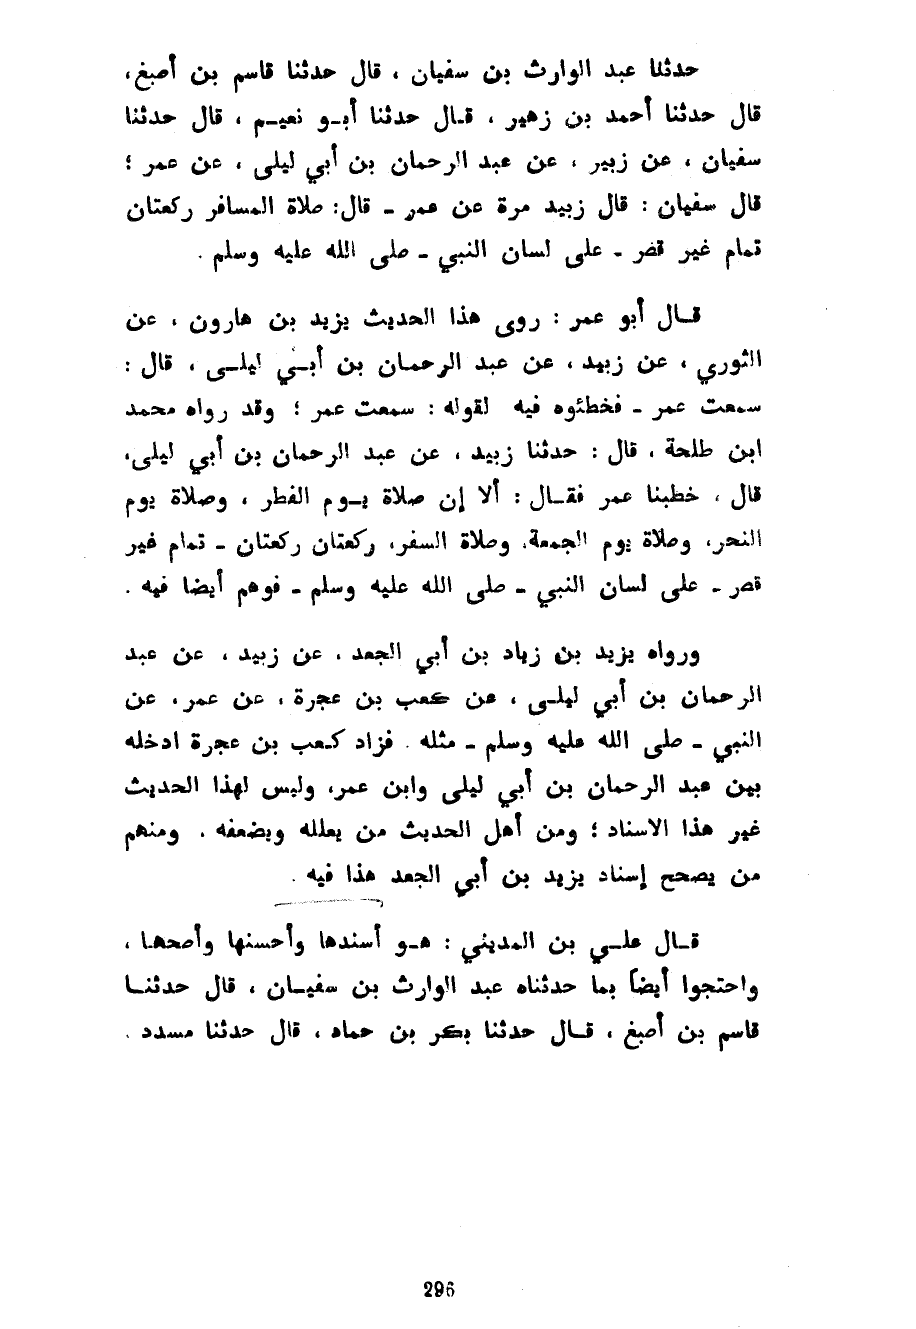 حدثنا عبد الوارث بن سفيان ، قال حدثنا قاسم بن أصبغ،
قال حدثنا أحمد بن زهير ، قـال حدثنا أبـو نعيـم ، قال حدثنا
سفيان ، عن زبير ، عن عبد الرحمان بن أبي ليلى ، عن عمر ؛
قال سفيان : قال زبيد مرة عن عمر ـ قال: صلاة المسافر ركعتان
تمام غير قصر ـ على لسان النبي ـ صلى الله عليه وسلم .
قـال أبو عمر : روى هذا الحديث يزيد بن هارون ، عن
الثوري ، عن زبيد ، عن عبد الرحمان بن أبـي ليلـى ، قال :
سمعت عمر ـ فخطئوه فيه لقوله : سمعت عمر ؛ وقد رواه محمد
ابن طلحة ، قال : حدثنا زبيد ، عن عبد الرحمان بن أبي ليلى،
قال ، خطبنا عمر فقـال : ألا إن صلاة يـوم الفطر ، وصلاة يوم
النحر، وصلاة يوم الجمعة، وصلاة السفر، ركعتان ركعتان ـ تمام غير
قصر ـ على لسان النبي ـ صلى الله عليه وسلم ـ فوهم أيضا فيه .
ورواه يزيد بن زياد بن أبي الجعد ، عن زبيد ، عن عبد
الرحمان بن أبي ليلـى ، عن كعب بن عجرة ، عن عمر، عن
النبي ـ صلى الله عليه وسلم ـ مثله . فزاد كـعب بن عجرة ادخله
بين عبد الرحمان بن أبي ليلى وابن عمر، وليس لهذا الحديث
غير هذا الاسناد ؛ ومن أهل الحديث من يعلله ويضعفه . ومنهم
من يصحح إسناد يزيد بن أبي الجعد هذا فيه .
قـال علـي بن المديني : هـو أسندها وأحسنها وأصحها ،
واحتجوا أيضاً بما حدثناه عبد الوارث بن سفيـان ، قال حدثنـا
قاسم بن أصبغ ، قـال حدثنا بكر بن حماد ، قال حدثنا مسدد .
296